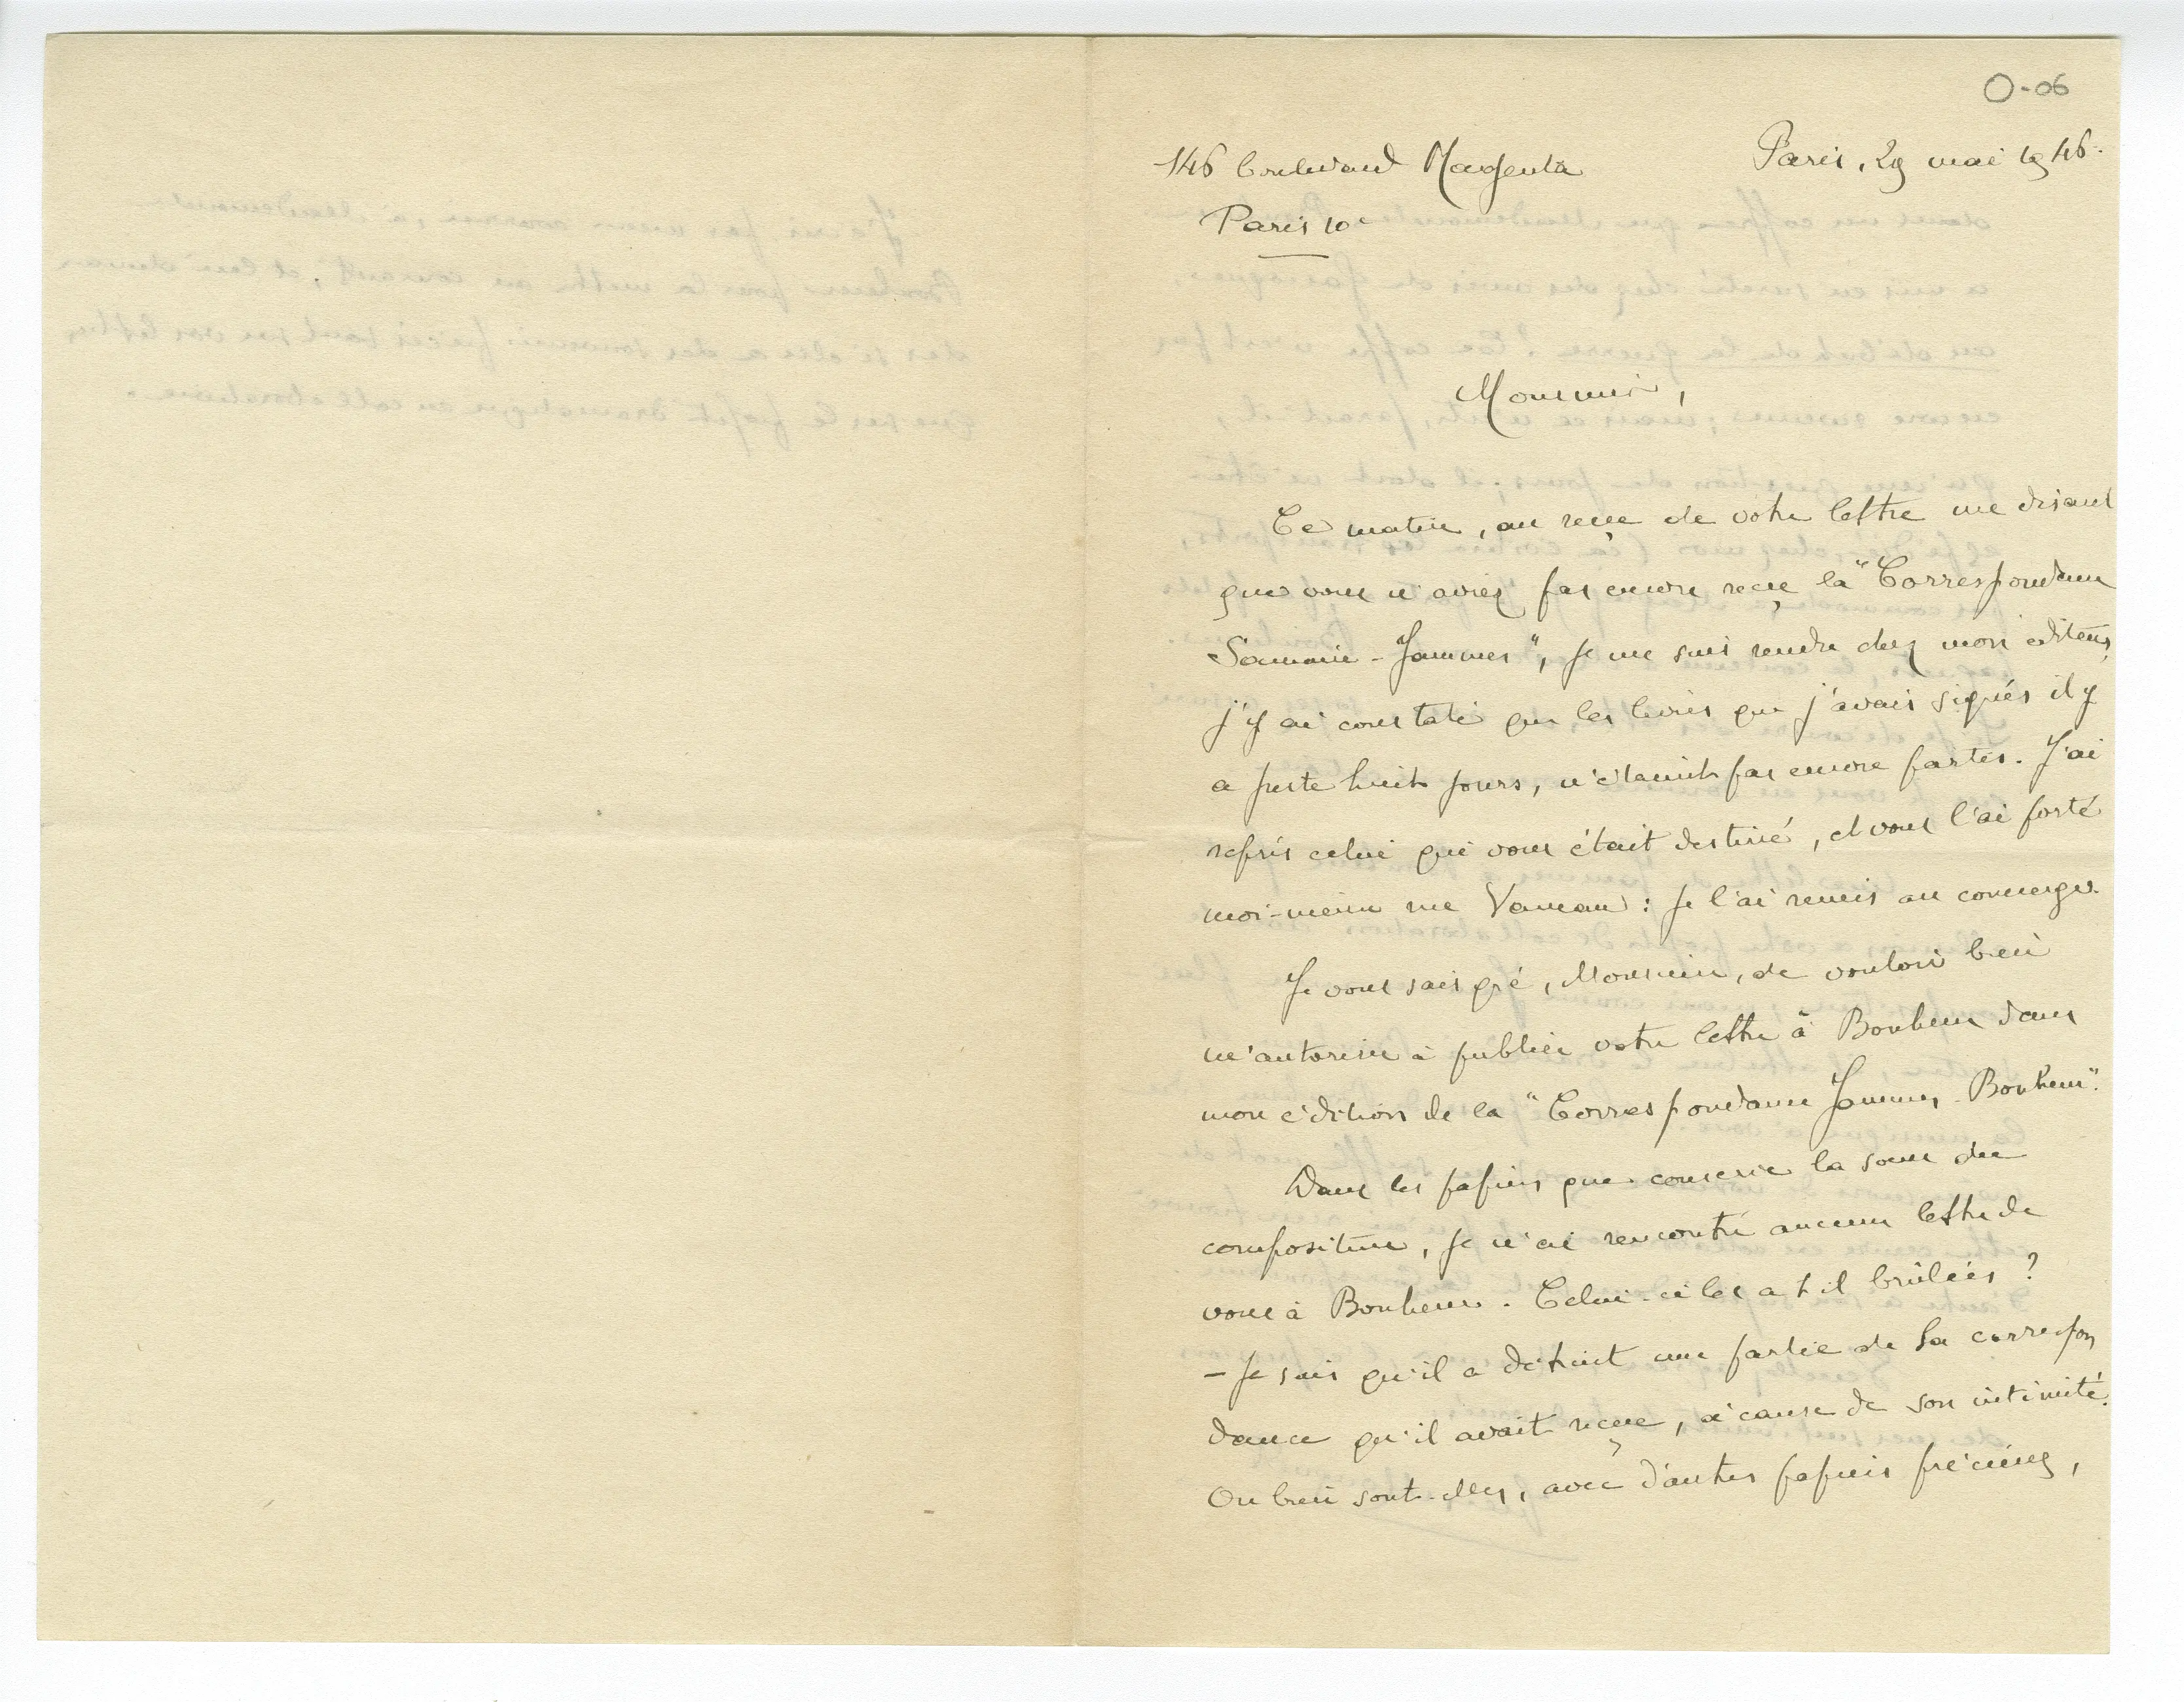 O-06
146 boulevard Magenta
Paris, 29 mai 1946.
Paris 10e
Monsieur,
Ce matin, au reçu de votre lettre me disant
que vous n'aviez pas encore reçu la "Correspondance
Samain-Jammes", je me suis rendu chez mon éditeur,
j'y ai constaté que les livres que j'avais signés il y
a juste huit jours, n'étaient pas encore partis. J'ai
repris celui qui vous était destiné, et vous l'ai porté
moi-même rue Vaneau : je l'ai remis au concierge.
Je vous sais gré, Monsieur, de vouloir bien
m'autoriser à publier votre lettre à Bonheur dans
mon édition de la "Correspondance Jammes-Bonheur".
Dans les papiers que conserve la sœur du
compositeur, je n'ai rencontré aucune lettre de
vous à Bonheur. Celui-ci les a t il brûlées ?
— Je sais qu'il a détruit une partie de sa correspon
dance qu'il avait reçue, à cause de son intimité.
Ou bien sont-elles, avec d'autres papiers précieux,